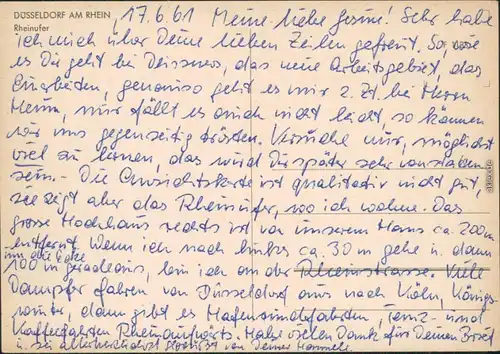 DÜSSELDORF AM RHEIN
Rheinufer
17.6.61 Meine liebe Gesine! Sehr habe
ich mich über Deine lieben Zeilen gefreut. So, wie
es Dir geht bei Deissner, das neue Arbeitsgebiet, das
Einarbeiten, genauso geht es mir z. Zt. bei Herrn
nur fällt es auch nicht leicht, so können
wir uns gegenseitig trösten. Versuche nur, möglichst
viel zu lernen, das wird Dir später sehr
sein. - Die Ansichtskarte ist qualitativ nicht gut,
zeigt aber das Rheinufer, wo ich wohne. Das
grosse Hochhaus rechts ist von unserem Haus ca. 200 m
entfernt. Wenn ich nach links ca. 30 m gehe u. dann
um die Ecke
100 m geradeaus, bin ich an der Rheinstrasse. Viele
Dampfer fahren von Düsseldorf aus nach Köln, Königs-
winter, dann gibt es Hafenrundfahrten, Tanz- und
Kaffeefahrten Rheinaufwärts. Habe vielen Dank für Deinen Brief
u. sei allerherzlichst von Deiner Hannele